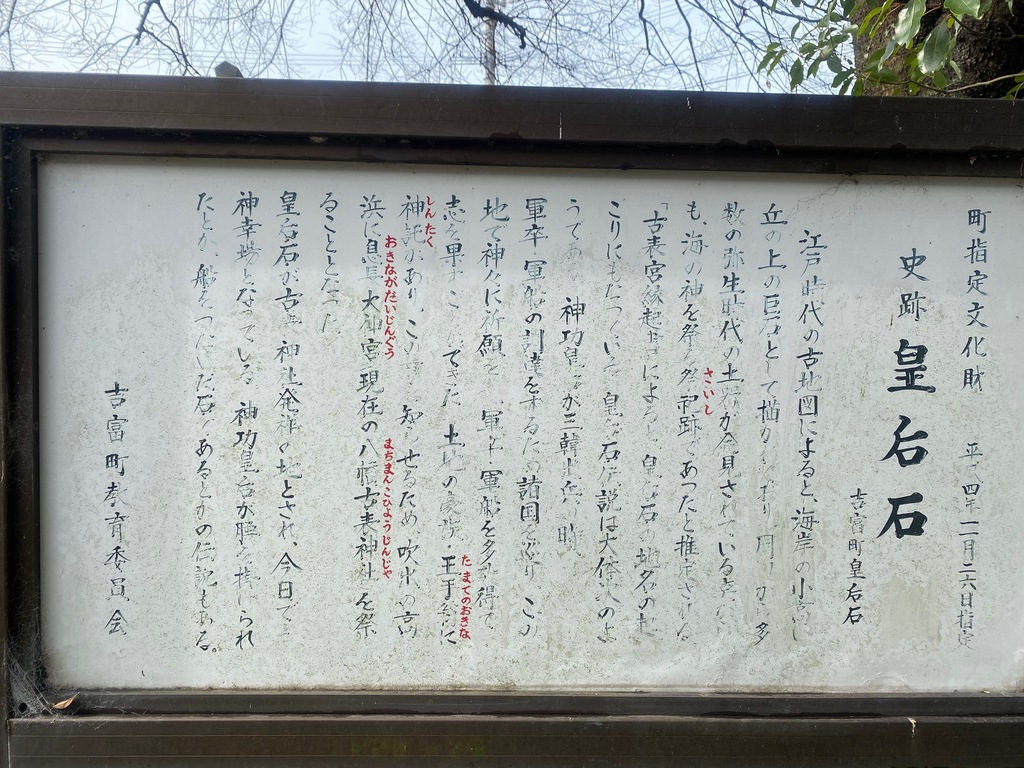 町指定文化財 平 四年 二月二六日指定
史跡 皇后石
吉富町皇后石
江戸時代の古地図によると、海岸の小高い
丘の上の巨石として描か おり 周 か 多
数の弥生時代の土器が発見されている ら
も、海の神を祭る祭祀跡であったと推定される
さいし
「古表宮縁起 によると、皇后石の地名の起
こりにもなっている皇后石伝説は大体次のよ
うである。 神功皇 が三韓出兵の時
軍卒、軍船の調達を るため諸国を巡り、この
地で神々に祈願 、軍卒、軍船を多 得て
志を果す こ できた。土地の豪族・玉手 に
たまてのおきな
神託があり、この を知らせるため、吹出の
しんたく
浜に息長大神宮 現在の八幡古表神社 を祭
おきながだいじんぐう
まちまんこひょうじんじゃ
ることとなった
皇后石が古表神社発祥の地とされ、今日でも
神幸場となっている。神功皇后が腰を掛けられ
たとか、船をつないだ石であるとかの伝説もある。
吉富町教育委員会